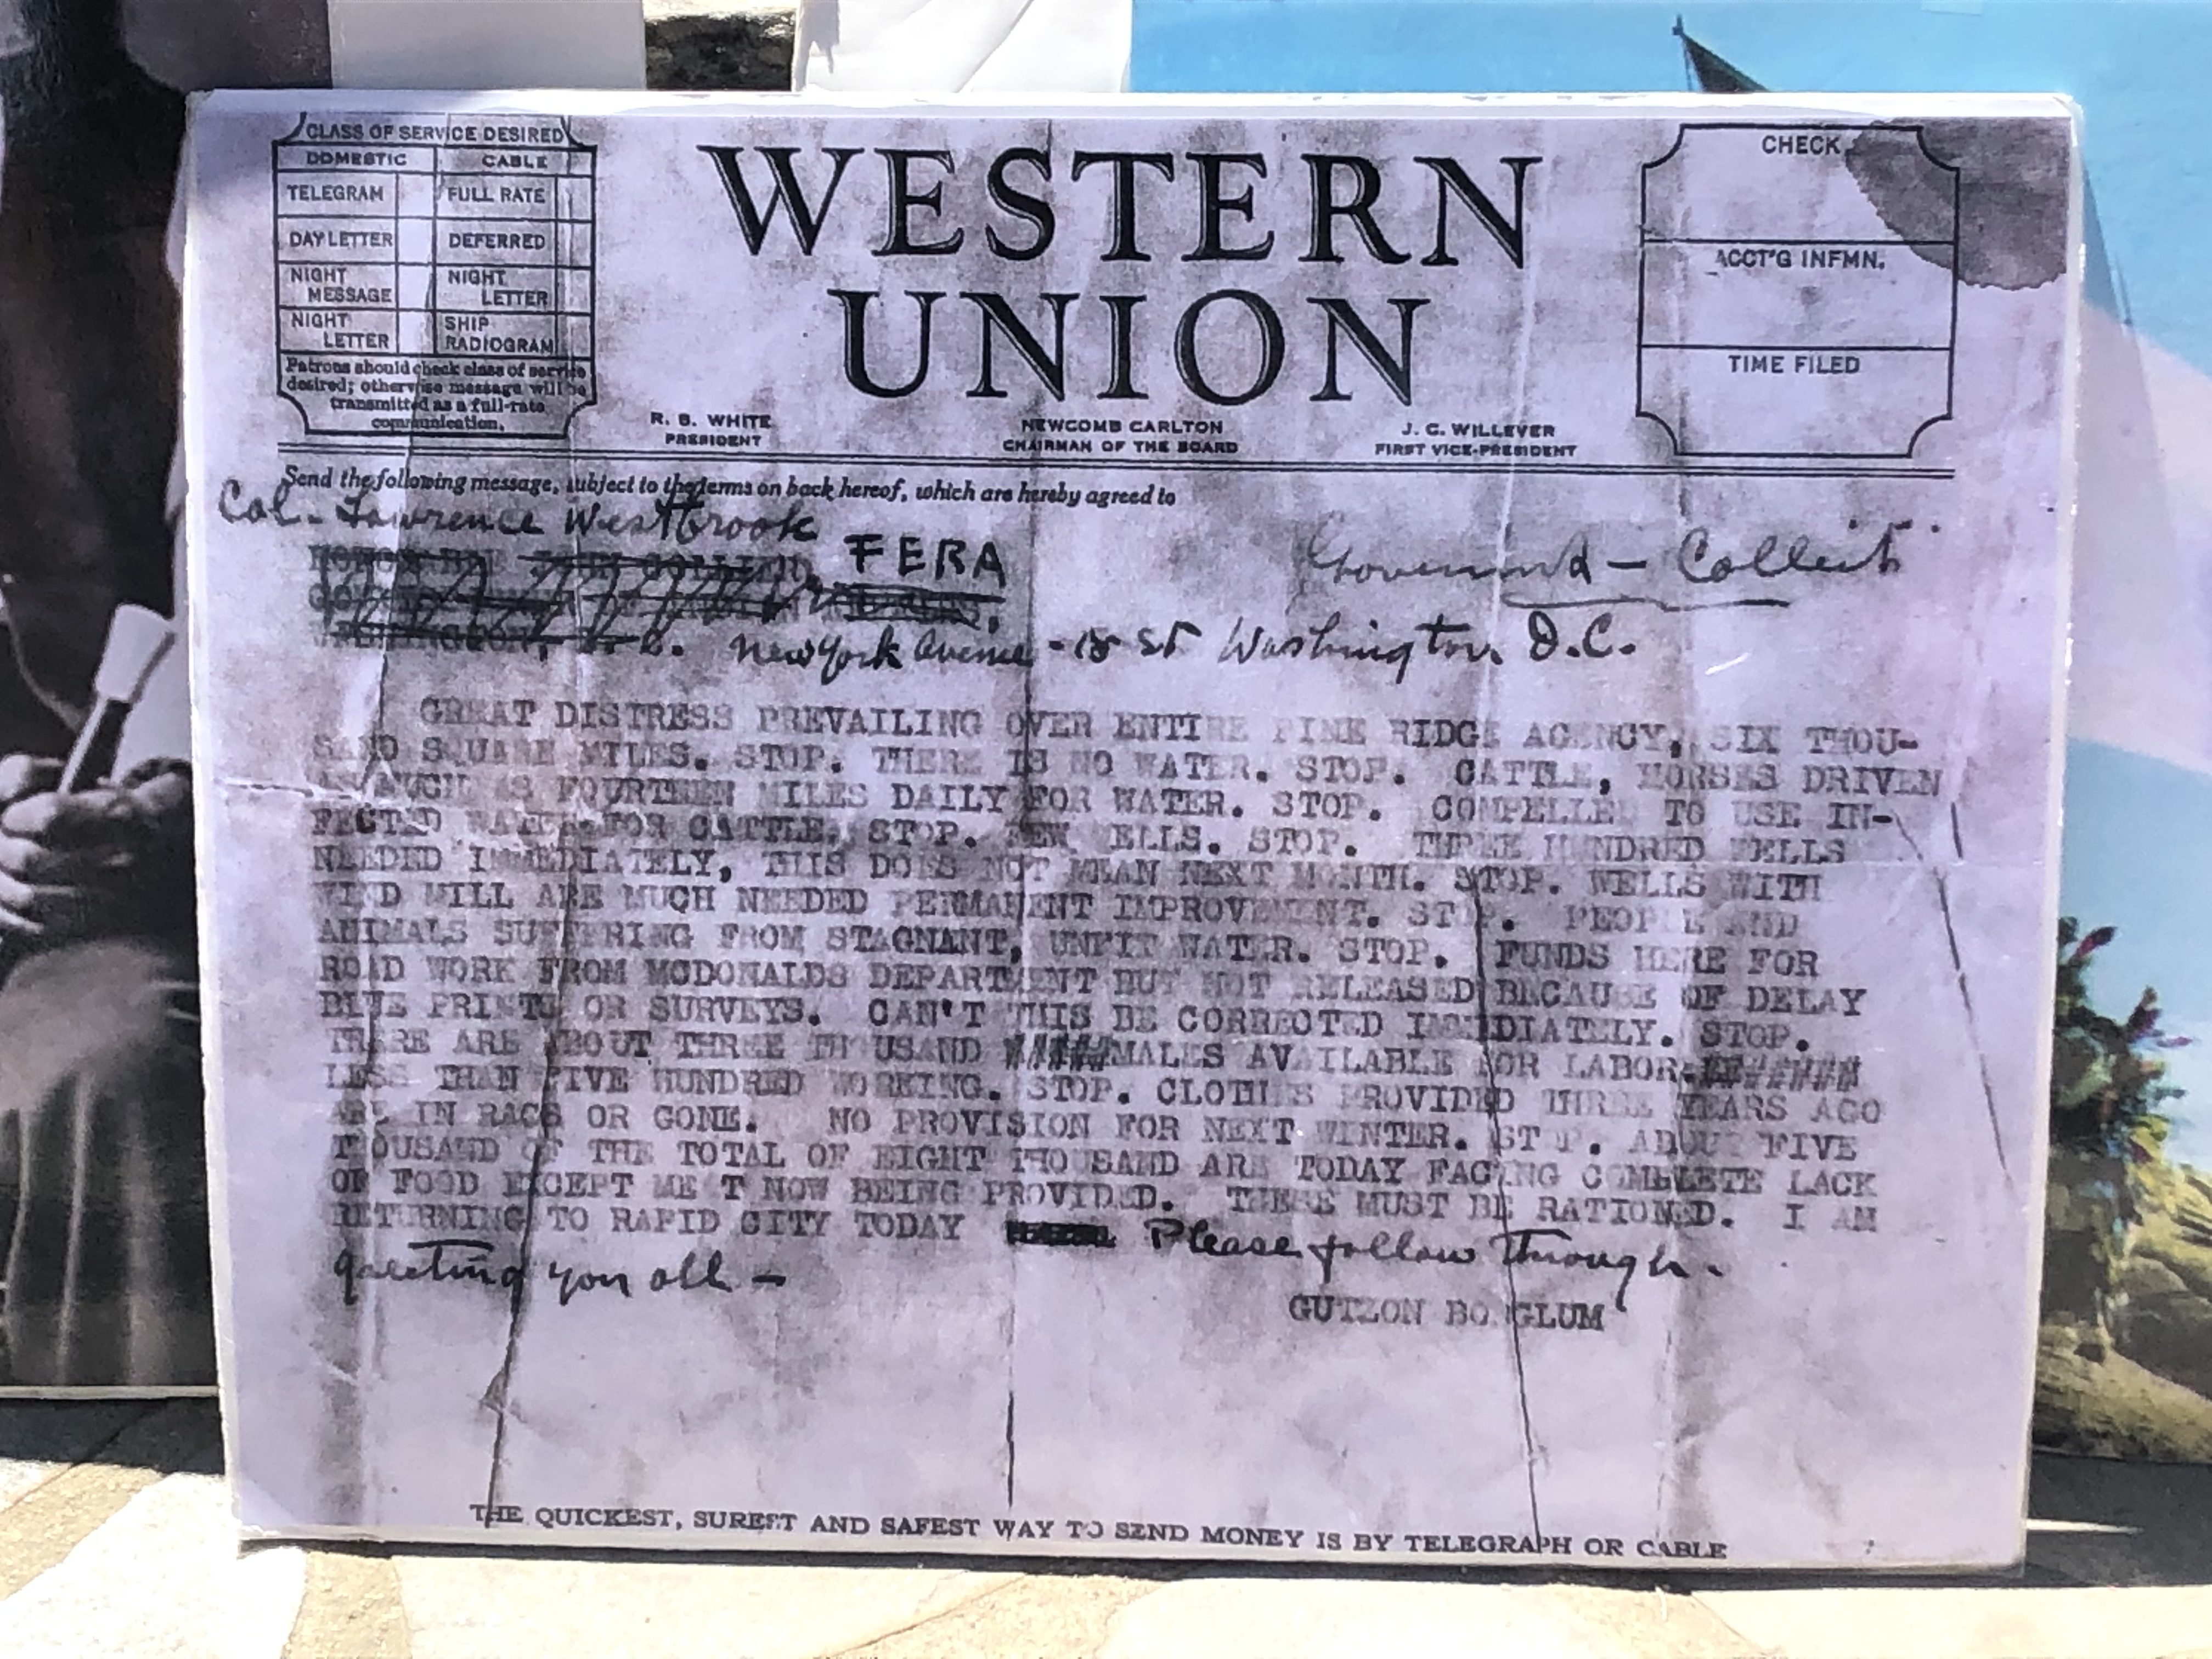 CLASS OF SERVICE DESIRED
DOMESTIC CABLE
TELEGRAM FULL RATE
DAY LETTER DEFERRED
NIGHT MESSAGE NIGHT LETTER
NIGHT LETTER SHIP RADIOGRAM
Patrons should check class of service
desired; otherwise message will be
transmitted as a full-rate
communication.
WESTERN
UNION
R. B. WHITE
PRESIDENT
NEWCOMB CARLTON
CHAIRMAN OF THE BOARD
J. C. WILLEVER
FIRST VICE-PRESIDENT
CHECK
ACCT'G INFMN.
TIME FILED
Send the following message, subject to the terms on back hereof, which are hereby agreed to
Col. Lawrence Westbrook
FERA
Government - Collect
New York Avenue - St Washington. D.C.
GREAT DISTRESS PREVAILING OVER ENTIRE PINE RIDGE AGENCY, SIX THOU-
SAND SQUARE MILES. STOP. THERE IS NO WATER. STOP. CATTLE, HORSES DRIVEN
AS MUCH AS FOURTEEN MILES DAILY FOR WATER. STOP. COMPELLED TO USE IN-
FECTED WATER FOR CATTLE, STOP. NEW WELLS. STOP. THREE HUNDRED WELLS
NEEDED IMMEDIATELY, THIS DOES NOT MEAN NEXT MONTH. STOP. WELLS WITH
WIND MILL ARE MUCH NEEDED PERMANENT IMPROVEMENT. STOP. PEOPLE AND
ANIMALS SUFFERING FROM STAGNANT, UNFIT WATER. STOP. FUNDS HERE FOR
ROAD WORK FROM MCDONALDS DEPARTMENT BUT NOT RELEASED BECAUSE OF DELAY
BLUE PRINTS OR SURVEYS. CAN'T THIS BE CORRECTED IMMEDIATELY. STOP.
THERE ARE ABOUT THREE THOUSAND MALES AVAILABLE FOR LABOR.
LESS THAN FIVE HUNDRED WORKING. STOP. CLOTHES PROVIDED THREE YEARS AGO
ARE IN RAGS OR GONE. NO PROVISION FOR NEXT WINTER. STOP. ABOUT FIVE
THOUSAND OF THE TOTAL OF EIGHT THOUSAND ARE TODAY FACING COMPLETE LACK
OF FOOD EXCEPT MEAT NOW BEING PROVIDED. THESE MUST BE RATIONED. I AM
RETURNING TO RAPID CITY TODAY Please follow through.
greeting you all -
GUTZON BORGLUM
THE QUICKEST, SUREST AND SAFEST WAY TO SEND MONEY IS BY TELEGRAPH OR CABLE